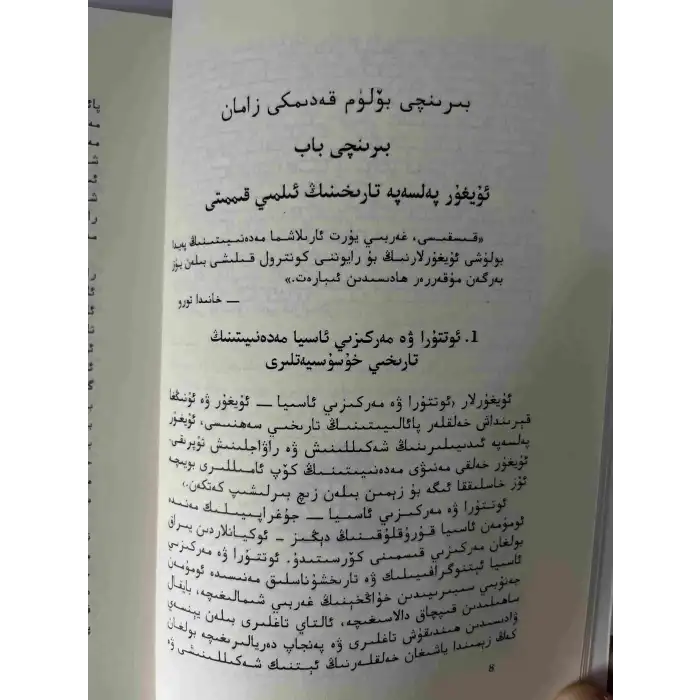 بىرىنچى بۆلۈم قەدىمكى زامان
بىرىنچى باب
ئۇيغۇر پەلسەپە تارىخىنىڭ ئىلمىي قىممىتى
«قىسقىسى، غەربىي يۇرت ئارىلاشما مەدەنىيىتىنىڭ پەيدا
بولۇشى ئۇيغۇرلارنىڭ بۇ رايوننى كونترول قىلىشى بىلەن يۈز
بەرگەن مۇقەررەر ھادىسىدىن ئىبارەت.»
— خانىدا تورو
1. ئوتتۇرا ۋە مەركىزىي ئاسىيا مەدەنىيىتىنىڭ
تارىخىي خۇسۇسىيەتلىرى
ئۇيغۇرلار (ئوتتۇرا ۋە مەركىزىي ئاسىيا — ئۇيغۇر ۋە ئۇنىڭغا
قېرىنداش خەلقلەر پائالىيىتىنىڭ تارىخىي سەھنىسى، ئۇيغۇر
پەلسەپە ئىدىيىلىرىنىڭ شەكىللىنىش ۋە راۋاجلىنىش تۇپرىقى.
ئۇيغۇر خەلقى مەنىۋى مەدەنىيىتىنىڭ كۆپ ئامىللىرى بويىچە
ئۆز خاسلىققا ئىگە بۇ زېمىن بىلەن زىچ بىرلىشىپ كەتكەن.)
ئوتتۇرا ۋە مەركىزىي ئاسىيا — جۇغراپىيىلىك مەنىدە
ئومۇمەن ئاسىيا قۇرۇقلۇقىنىڭ دېڭىز - ئوكيانلاردىن يىراق
بولغان مەركىزىي قىسمىنى كۆرسىتىدۇ. ئوتتۇرا ۋە مەركىزىي
ئاسىيا ئېتنوگرافىيىلىك ۋە تارىخشۇناسلىق مەنىسىدە ئومۇمەن
جەنۇبىي سىبىرىيىدىن خۇاڭخېنىڭ غەربىي شىمالىغىچە، بايقال
ساھىلىدىن قىپچاق دالاسىغىچە، ئالتاي تاغلىرى بىلەن يېنسەي
ۋادىسىدىن ھىندىقۇش تاغلىرى ۋە پەنجاپ دەريالىرىغىچە بولغان
كەڭ زېمىندا ياشىغان خەلقلەرنىڭ ئېتنىك شەكىللىنىشى ۋە
8